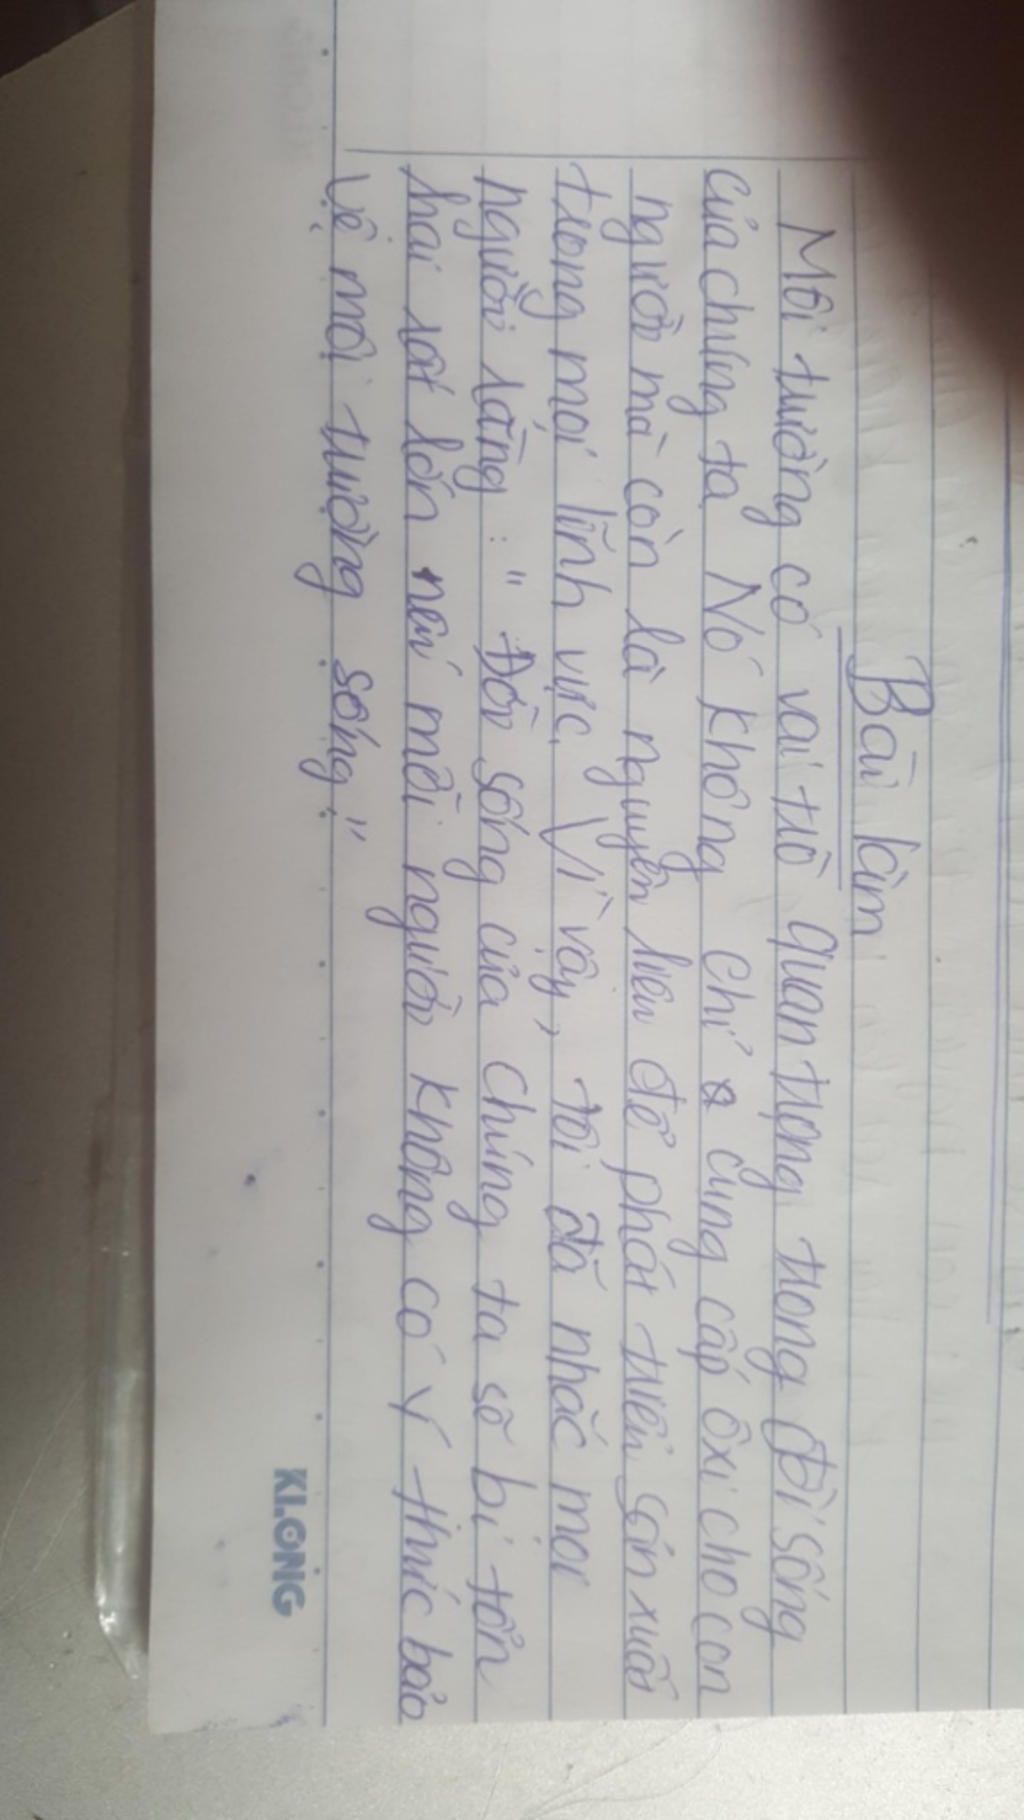 Bài làm
Môi trường có vai trò quan trọng trong đời sống
của chúng ta. Nó không chỉ cung cấp ôxi cho con
người mà còn là nguyên liệu để phát triển sản xuất
trong mọi lĩnh vực. Vì vậy, tôi đã nhắc mọi
người rằng: "Đời sống của chúng ta sẽ bị tổn
hại rất lớn nếu mỗi người không có ý thức bảo
vệ môi trường sống."
KLONG